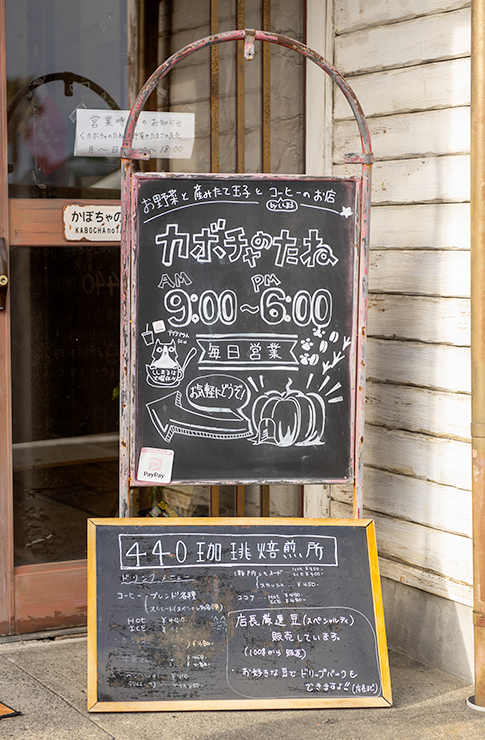 営業時 のお知らせ
くカボチャのたね
月～日 18:00
かぼちゃの
KABOCHAno
お野菜と産みたて玉子とコーヒーのお店
カボチャのたね
AM PM
9:00～6:00
毎日営業
お気軽にどうぞ！
PayPay
440珈琲焙煎所
ドリンクメニュー
コーヒー ブレンド各種
HOT
ICE
スカッシュ ¥450
ココア HOT
ICE
店長厳選豆(スペシャルティ)
販売しています。
(100gから販売)
お好きな豆とドリップパックも
できますよ!!